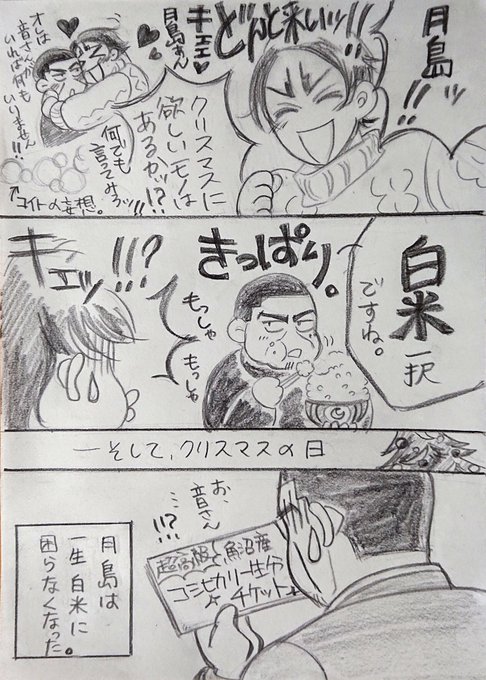 月島ッ!!
どんと来いッ!!
クリスマスに
欲しいモノは
あるかッ!?
何でも
言ってみろッ!!
キエエ
月島さん
オレは
音さんが
いれば何も
いりません!!
↑コイトの妄想。
白米一択
ですね。
きっぱり。
もっしゃ
もっしゃ
キエッ!!!?
ーそして、クリスマスの日
お、音さん…!?
超高級 魚沼産
コシヒカリ一生分
チケット
月島は
一生白米に
困らなくなった。